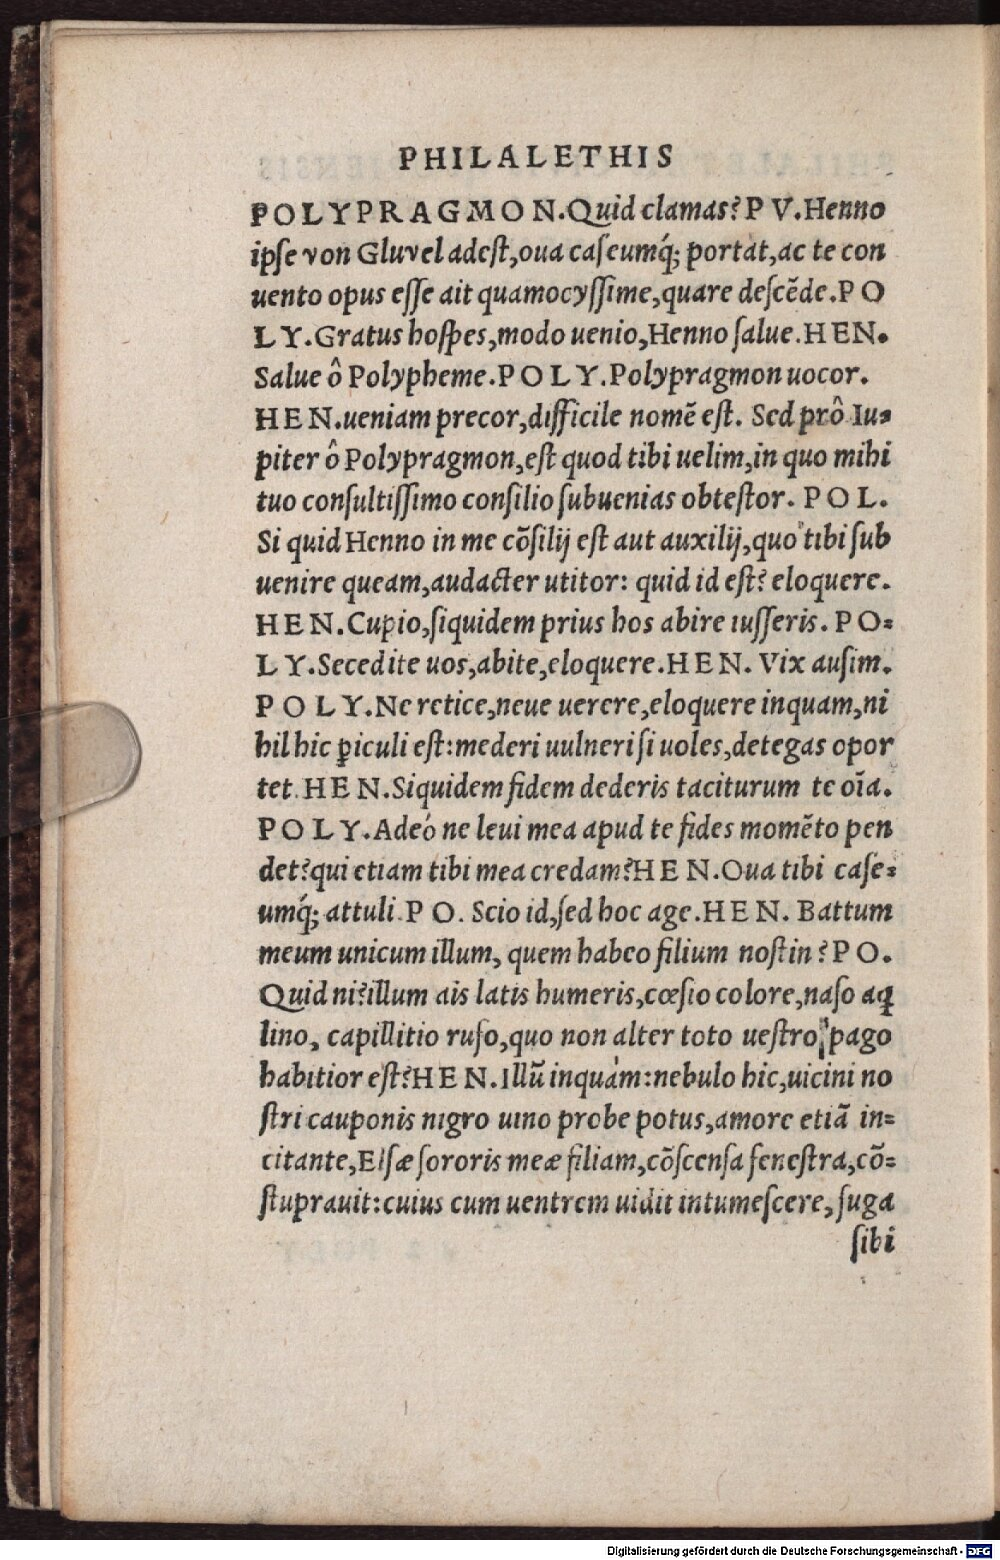 PHILALETHIS
POLYPRAGMON.Quid clamas? P V.Henno
ipse von Gluvel adest,oua caseumq́; portat,ac te con
uento opus esse ait quamocyssime,quare descẽde.P O
L Y.Gratus hospes,modo uenio,Henno salue.H E N.
Salue ô Polypheme.P O L Y.Polypragmon uocor.
H E N.ueniam precor,difficile nomẽ est. Sed prô Iu-
piter ô Polypragmon,est quod tibi uelim,in quo mihi
tuo consultissimo consilio subuenias obtestor. P O L.
Si quid Henno in me cõsilij est aut auxilij,quo tibi sub
uenire queam,audacter utitor: quid id est? eloquere.
H E N.Cupio,siquidem prius hos abire iusseris. P O-
L Y.Secedite uos,abite,eloquere.H E N. Vix ausim.
P O L Y.Ne retice,neue uerere,eloquere inquam,ni
hil hic ꝑiculi est:mederi uulneri si uoles,detegas opor
tet.H E N.Siquidem fidem dederis taciturum te oĩa.
P O L Y.Adeó ne leui mea apud te fides momẽto pen
det?qui etiam tibi mea credam?H E N.Oua tibi case-
umq́; attuli.P O. Scio id,sed hoc age.H E N. Battum
meum unicum illum, quem habeo filium nostin? P O.
Quid ni?illum ais latis humeris,cœsio colore,naso aq̃
lino, capillitio rufo,quo non alter toto uestro pago
habitior est?H E N.Illũ inquàm:nebulo hic,uicini no
stri cauponis nigro uino probe potus,amore etiã in-
citante,Elsæ sororis meæ filiam,cõscensa fenestra,cõ-
stuprauit:cuius cum uentrem uidit intumescere, fuga
sibi
Digitalisierung gefördert durch die Deutsche Forschungsgemeinschaft - DFG